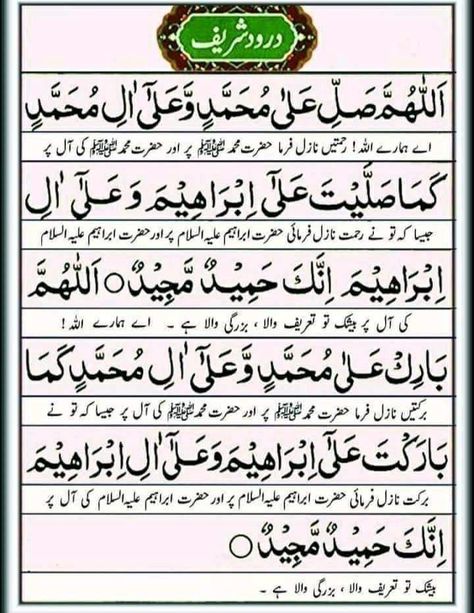 درود شریف
اَللّٰهُمَّ صَلِّ عَلٰى مُحَمَّدٍ وَّعَلٰٓى اٰلِ مُحَمَّدٍ
اے ہمارے اللہ ! رحمتیں نازل فرما حضرت محمد ﷺ پر اور حضرت محمد ﷺ کی آل پر
كَمَا صَلَّيْتَ عَلٰٓى اِبْرَاهِيْمَ وَعَلٰٓى اٰلِ
جیسا کہ تو نے رحمت نازل فرمائی حضرت ابراہیم علیہ السلام پر اور حضرت ابراہیم علیہ السلام
اِبْرَاهِيْمَ اِنَّكَ حَمِيْدٌ مَّجِيْدٌ ○ اَللّٰهُمَّ
کی آل پر بیشک تو تعریف والا ، بزرگی والا ہے ۔ اے ہمارے اللہ !
بَارِكْ عَلٰى مُحَمَّدٍ وَّعَلٰٓى اٰلِ مُحَمَّدٍ كَمَا
برکتیں نازل فرما حضرت محمد ﷺ پر اور حضرت محمد ﷺ کی آل پر جیسا کہ تو نے
بَارَكْتَ عَلٰٓى اِبْرَاهِيْمَ وَعَلٰٓى اٰلِ اِبْرَاهِيْمَ
برکت نازل فرمائی حضرت ابراہیم علیہ السلام پر اور حضرت ابراہیم علیہ السلام کی آل پر
اِنَّكَ حَمِيْدٌ مَّجِيْدٌ ○
بیشک تو تعریف والا ، بزرگی والا ہے ۔